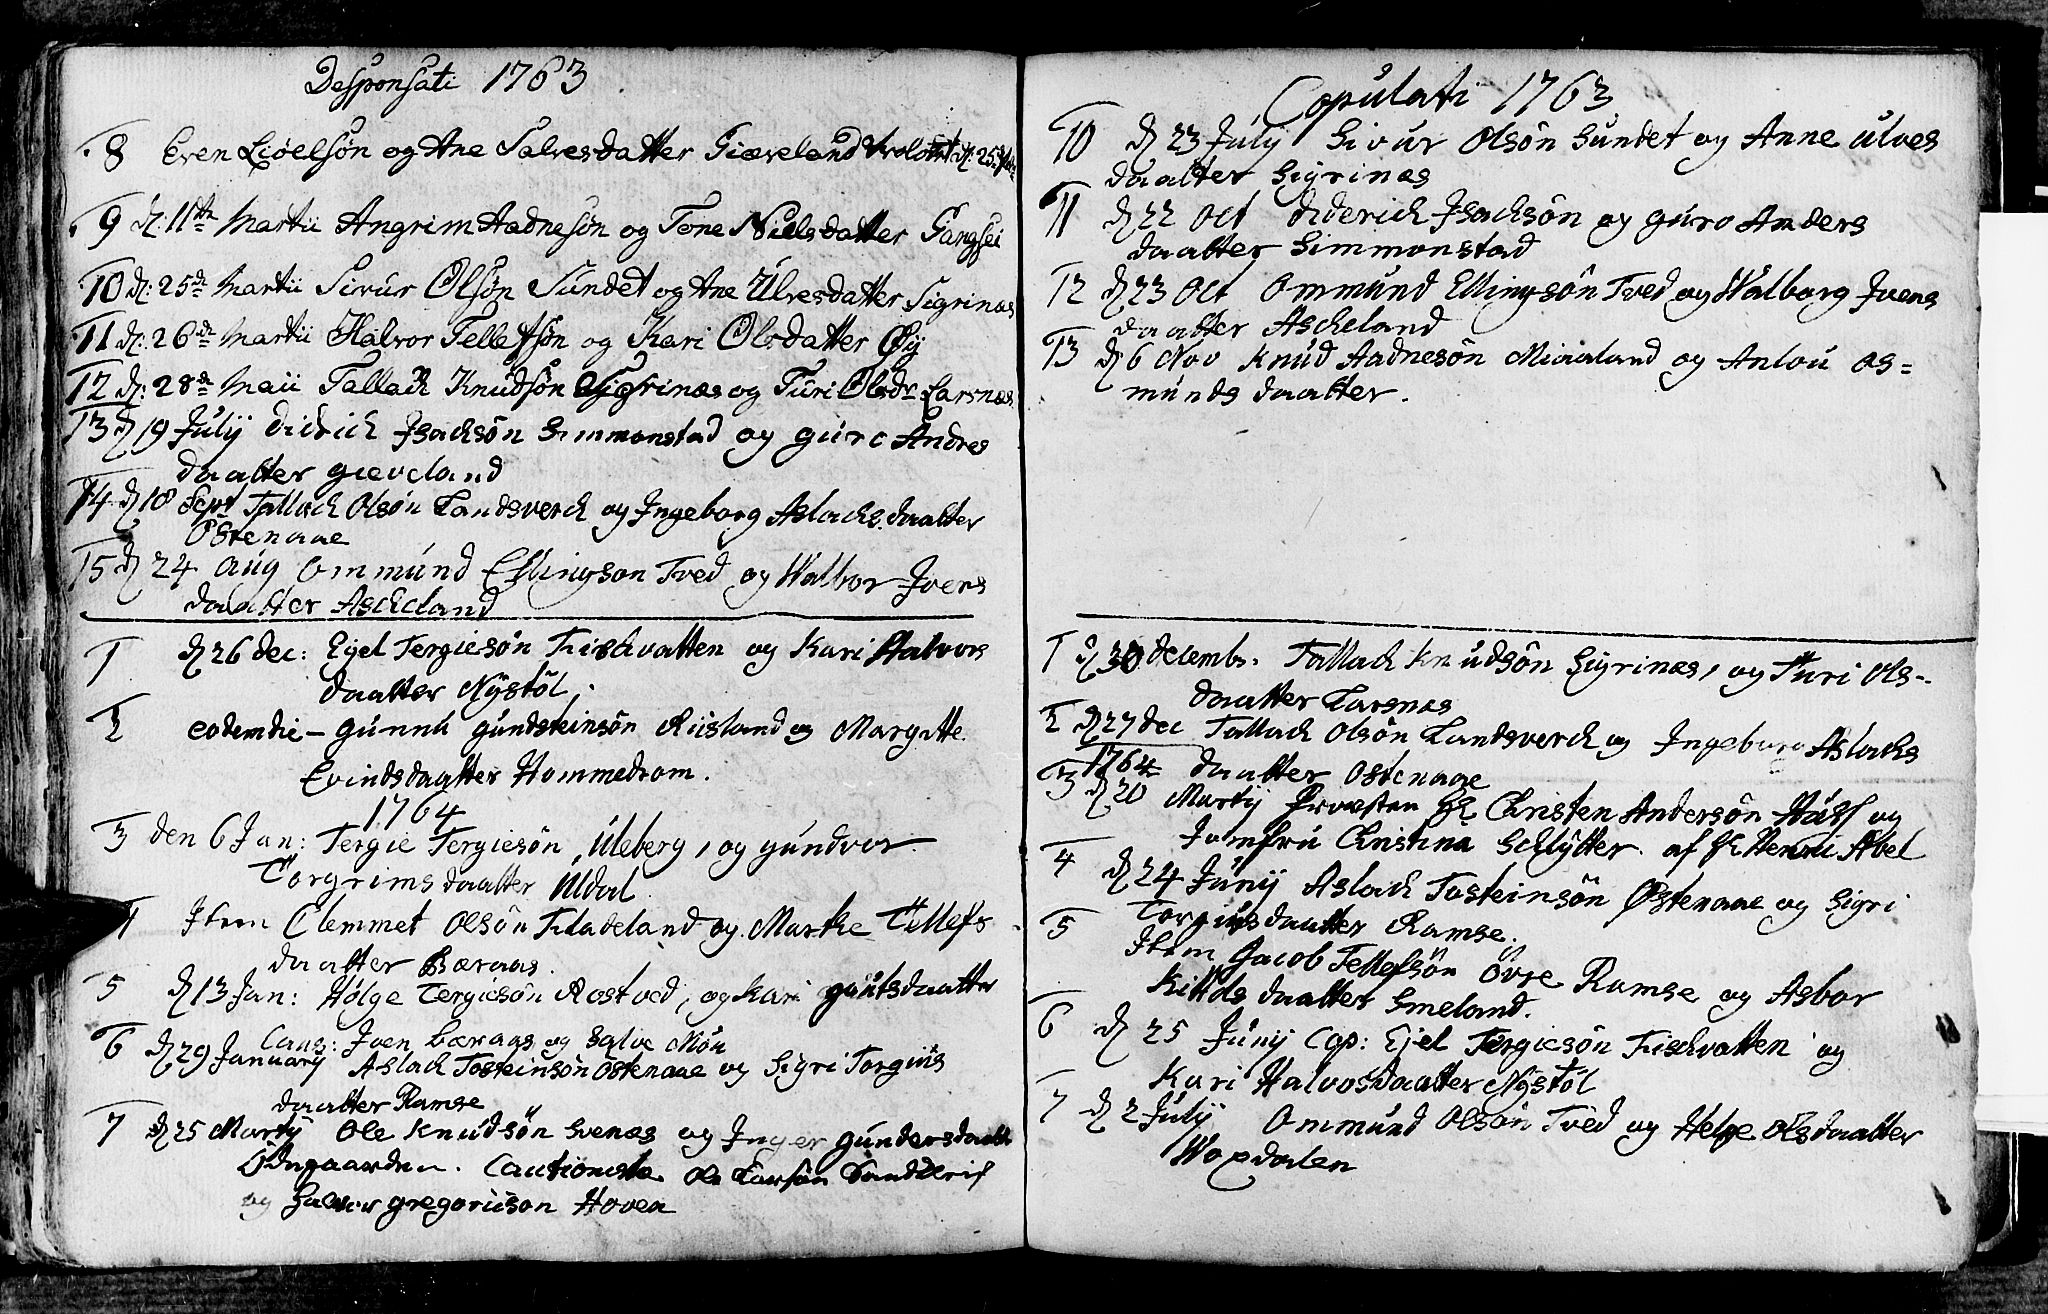 Desponsati 1763
8 Even Liøelsön og Ane Salvesdatter Giæveland trolovet d: 25
9 d: 11te Martii Angrim Aadnesön og Tone Nielsdatter Gangsei
10 d: 25de Martii Sivur Olsön Sundet og Ane Ulvesdatter Sigrinæs
11 d: 26de Martii Halvor Tellefsön og Kari Olsdatter Øÿ
12 d: 28de Maii Tallack Knudsön Sigrinæs og Turi Olsdr Larsnæs
13 d 19 Julij didrich Jsachsön Simmonstad og guro Andres
daatter gieveland
14 d 18 Sept Tallach Olsön Landsverch og Jngeborg Aslachs daatter
Ostenaae
15 d 24 aug Ommund Ellingson Tved og Walbor Jvers
daatter Ascheland
1 d 26 dec: Ejel Tergiesön Fischvatten og Kari Halvors
daatter Nÿstöl.
2 eodem die – gunnu gundsteinsön Riisland og Margitte
Evindsdaatter Hommedrom.
1764
3 den 6 Jan: Tergie Tergiesön, Uleberg, og gundvor
Torgrimsdaatter Uldal
4 Jtem Clemmet Olsön Fladeland og Marthe Tellefs
daatter Bæraas.
5 d 13 Jan: Hölge Tergiesön Rostved, og Kari gautsdaatter
Caus: Jven Bæraas og Salve Möu
6 d 29 Januarij Aslach Tosteinsön Ostenaae og Sigri Torgius
daatter Ramse
7 d 25 Martij Ole Knudsön Svenæs og Jnger gundersdaatt
Ødegaarden. Cautionister Ole Larsön
og gregoriison Hoven
Copulati 1763
10 d 23 Julÿ Sivur Olsön Sundet og Anne ulves
daatter Sigrinæs
11 d 22 Oct diderich Jsachsön og guro Anders
daatter Simmonstad
12 d 23 Oct Ommund Ellingsön Tved og Walborg Jvens
daatter Ascheland
13 d 6 Nov Knud Aadnesön Miaaland og Anlou Os=
munds daatter.
1 d 30 decembr. Tallach Knudsön Sigrinæs, og Turi Ols-
daatter Larsnæs
2 d 27 dec Tallach Olsön Landsverch og Jngeborg Aslachs
daatter Ostenaae
1764
3 d 20 Martij Provsten Hr Christen Andersön Huss og
Jomfru Christina Schlÿtter af Hr Henric Abel
4 d 24 Junij Aslach Tosteinsön Østenaae og Sigri
Torgiusdaatter Ramse.
5 Jtem Jacob Tellefsön Övre Ramse og Asbor
Kittils daatter Smeland.
6 d 25 Junij Cop: Ejel Tergiesön Fischvatten og
Kari Halvosdaatter Nÿstöl
7 d 2 Julij Ommund Olsön Tved og Helge Olsdaatter
Woxdalen